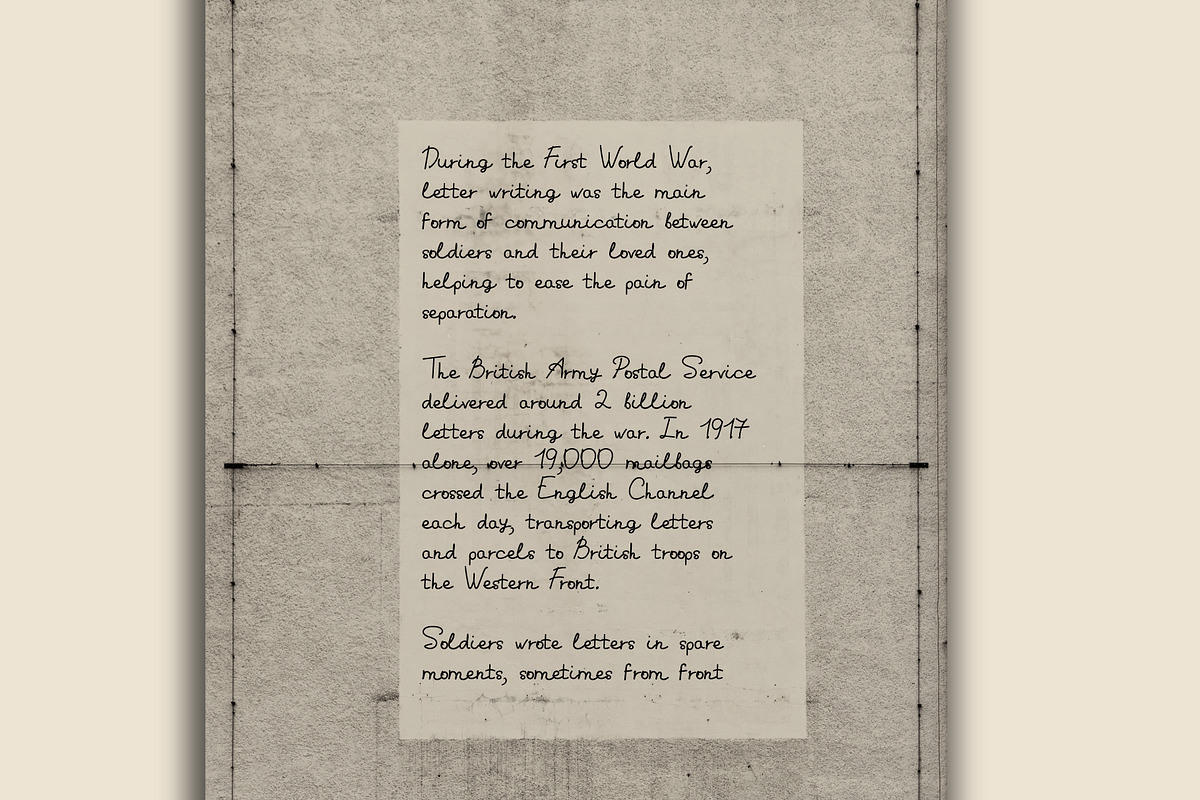 During the First World War,
letter writing was the main
form of communication between
soldiers and their loved ones,
helping to ease the pain of
separation.
The British Army Postal Service
delivered around 2 billion
letters during the war. In 1917
alone, over 19,000 mailbags
crossed the English Channel
each day, transporting letters
and parcels to British troops on
the Western Front.
Soldiers wrote letters in spare
moments, sometimes from front